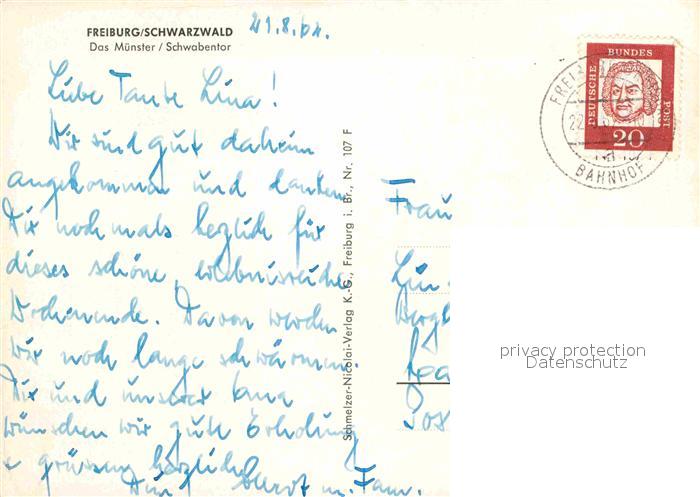 FREIBURG/SCHWARZWALD 21.8.62.
Das Münster / Schwabentor
Liebe Tante Lina!
Wir sind gut daheim
angekommen und danken
Dir nochmals herzlich für
dieses schöne, erlebnisreiche
Wochenende. Davon werden
wir noch lange schwärmen.
Dir und unserer
wünschen wir gute Erholung
& grüssen herzlich
Dein m. Fam.
Schmelzer-Nicolai-Verlag K.-G., Freiburg i. Br., Nr. 107 F
DEUTSCHE BUNDES POST
20
BAHNHOF
Frau
privacy protection
Datenschutz